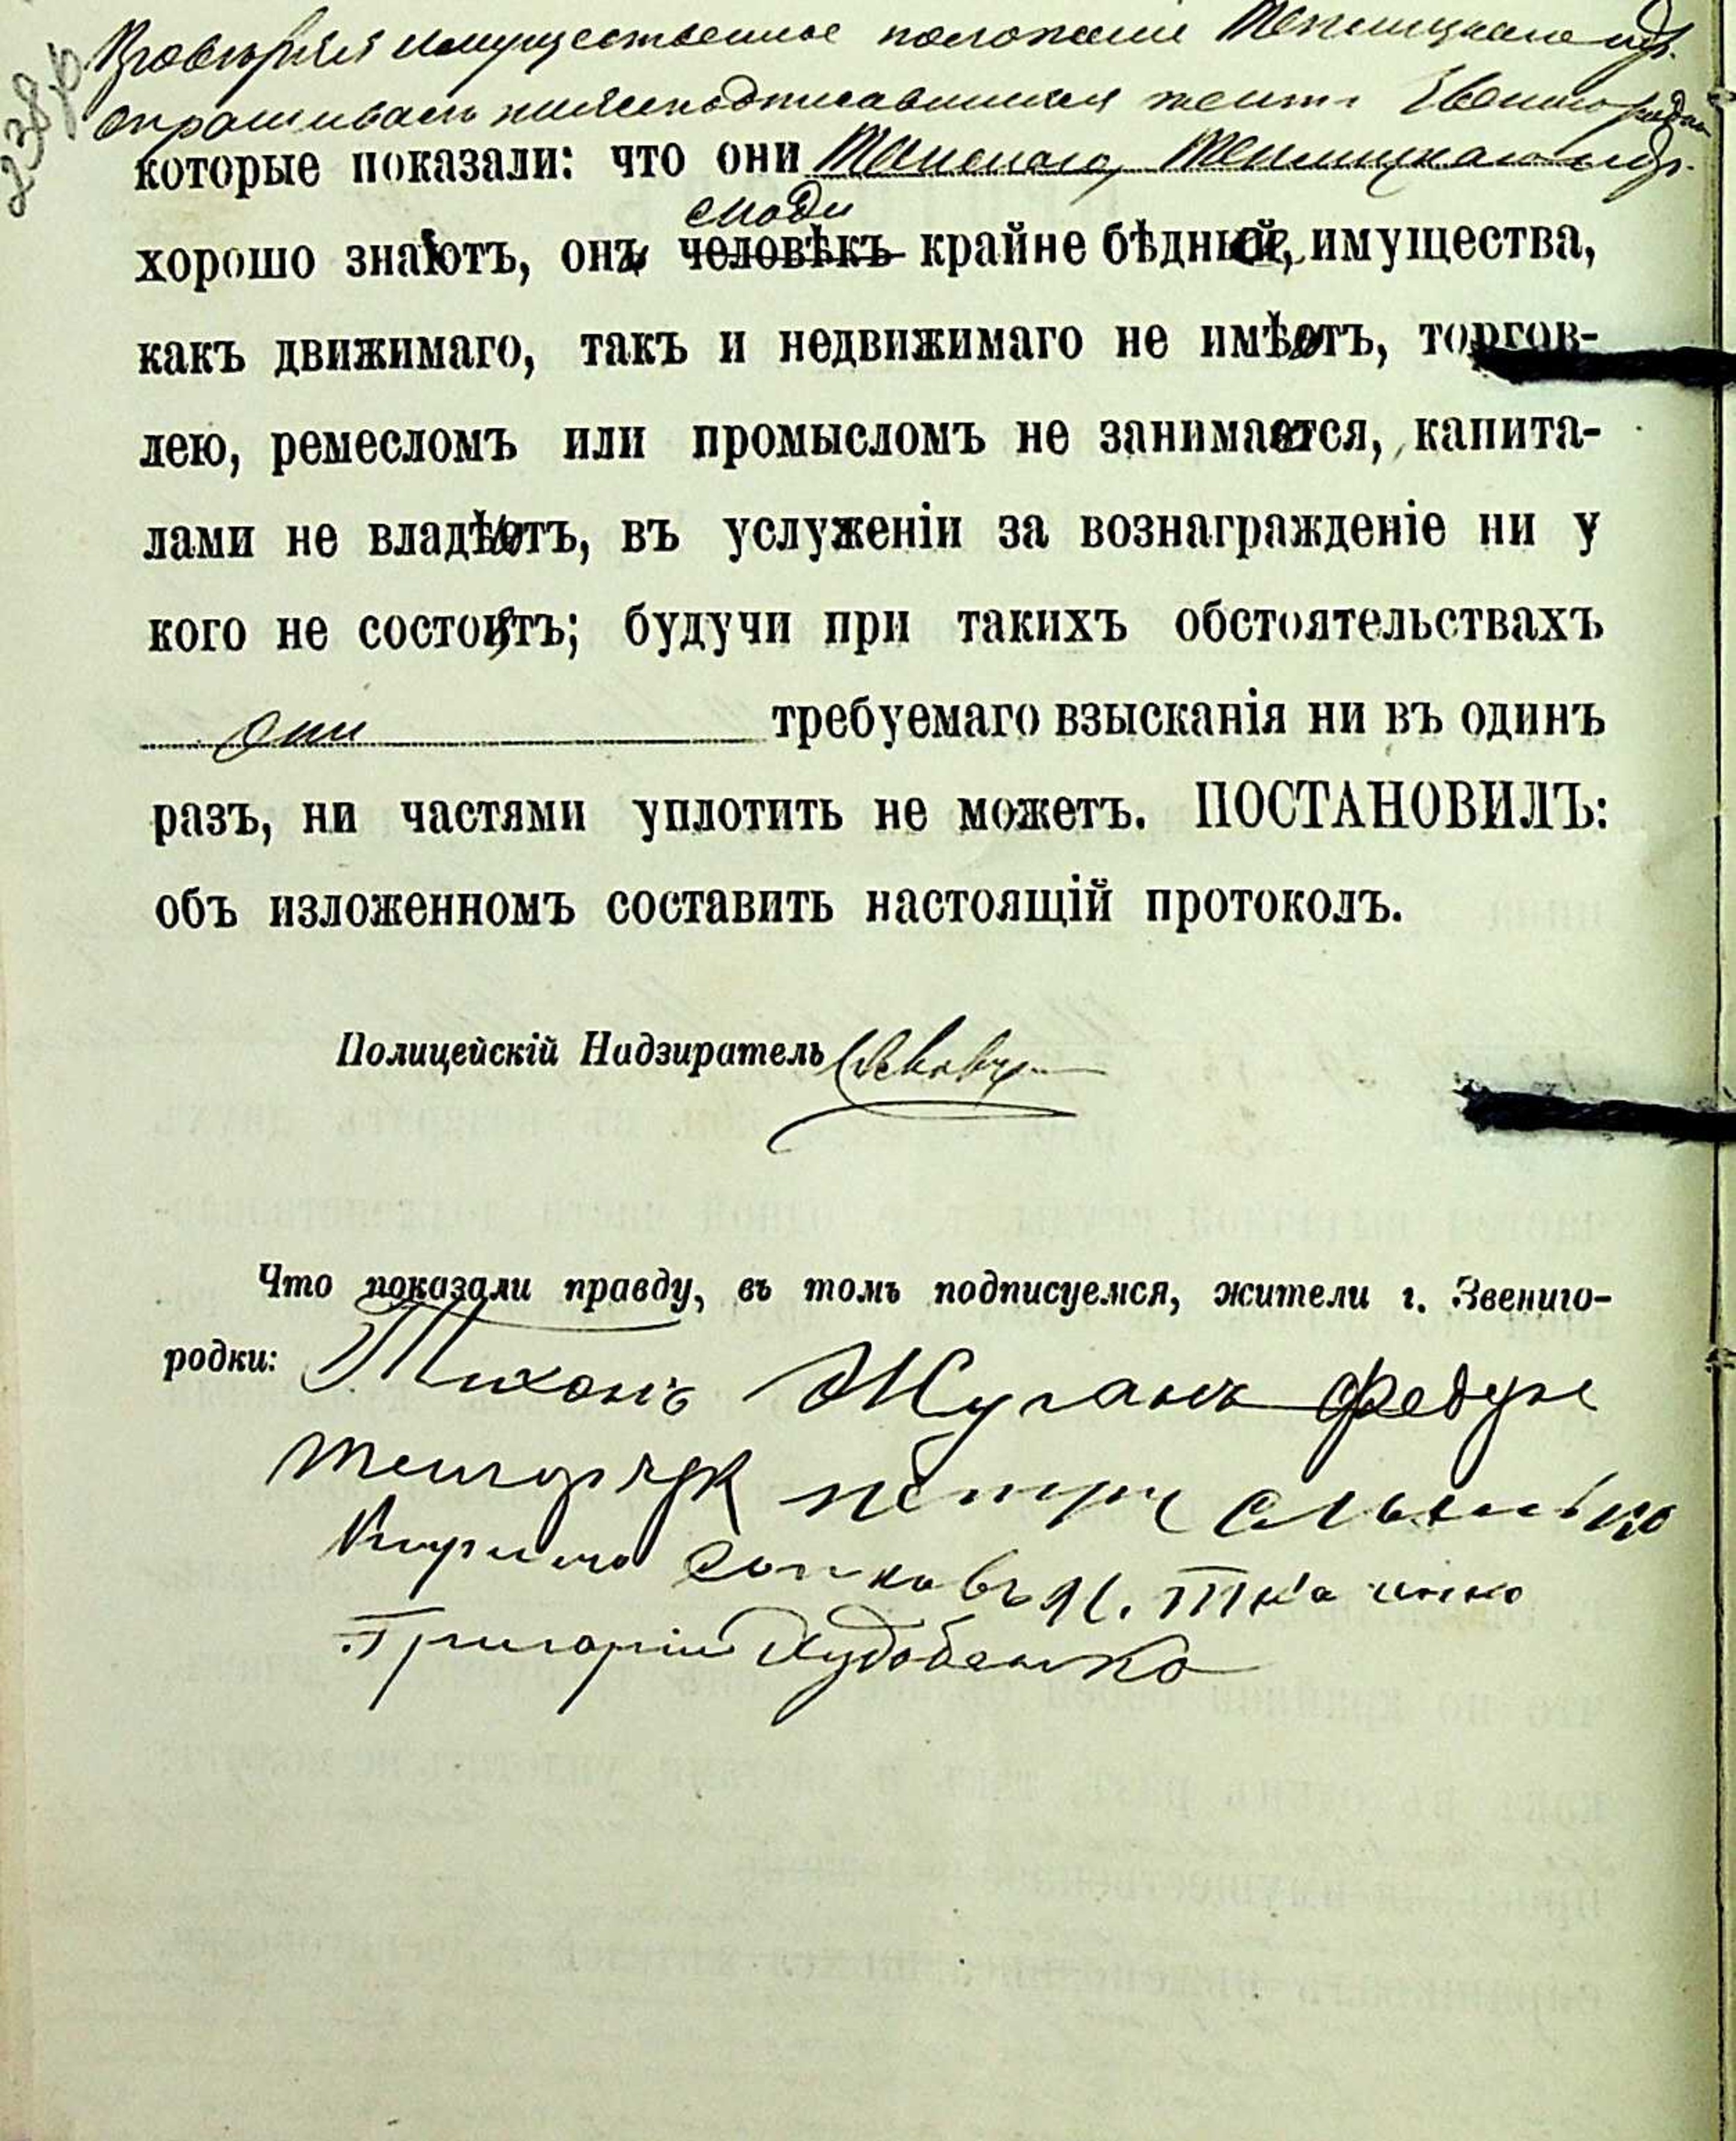 имущественное положеніе Теплицкаго и др.
опрашивалъ нижеподписавшихся жит. г. Звенигородки
которые показали: что они Танскаго, Теплицкаго и др.
люди
хорошо знаютъ, они человѣкъ крайне бѣдные, имущества,
какъ движимаго, такъ и недвижимаго не имѣютъ, торгов-
лею, ремесломъ или промысломъ не занимаются, капита-
лами не владѣютъ, въ услуженіи за вознагражденіе ни у
кого не состоятъ; будучи при такихъ обстоятельствахъ
они требуемаго взысканія ни въ одинъ
разъ, ни частями уплотить не можетъ. ПОСТАНОВИЛЪ:
объ изложенномъ составить настоящій протоколъ.
Полицейскій Надзиратель
Что показали правду, въ томъ подписуемся, жители г. Звениго-
родки: Тихонъ Жуганъ Федуре
петуре
Кирило
Григорій Худобенко
238 об